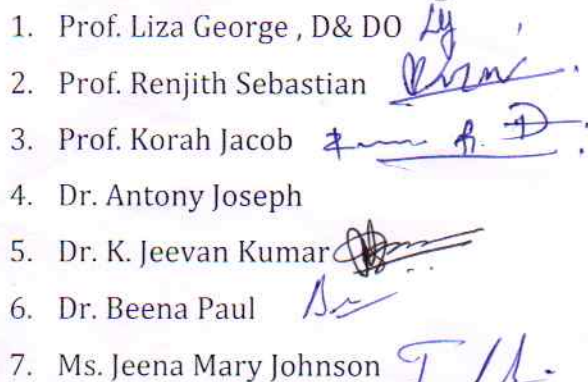 1. Prof. Liza George , D& DO
2. Prof. Renjith Sebastian
3. Prof. Korah Jacob
4. Dr. Antony Joseph
5. Dr. K. Jeevan Kumar
6. Dr. Beena Paul
7. Ms. Jeena Mary Johnson